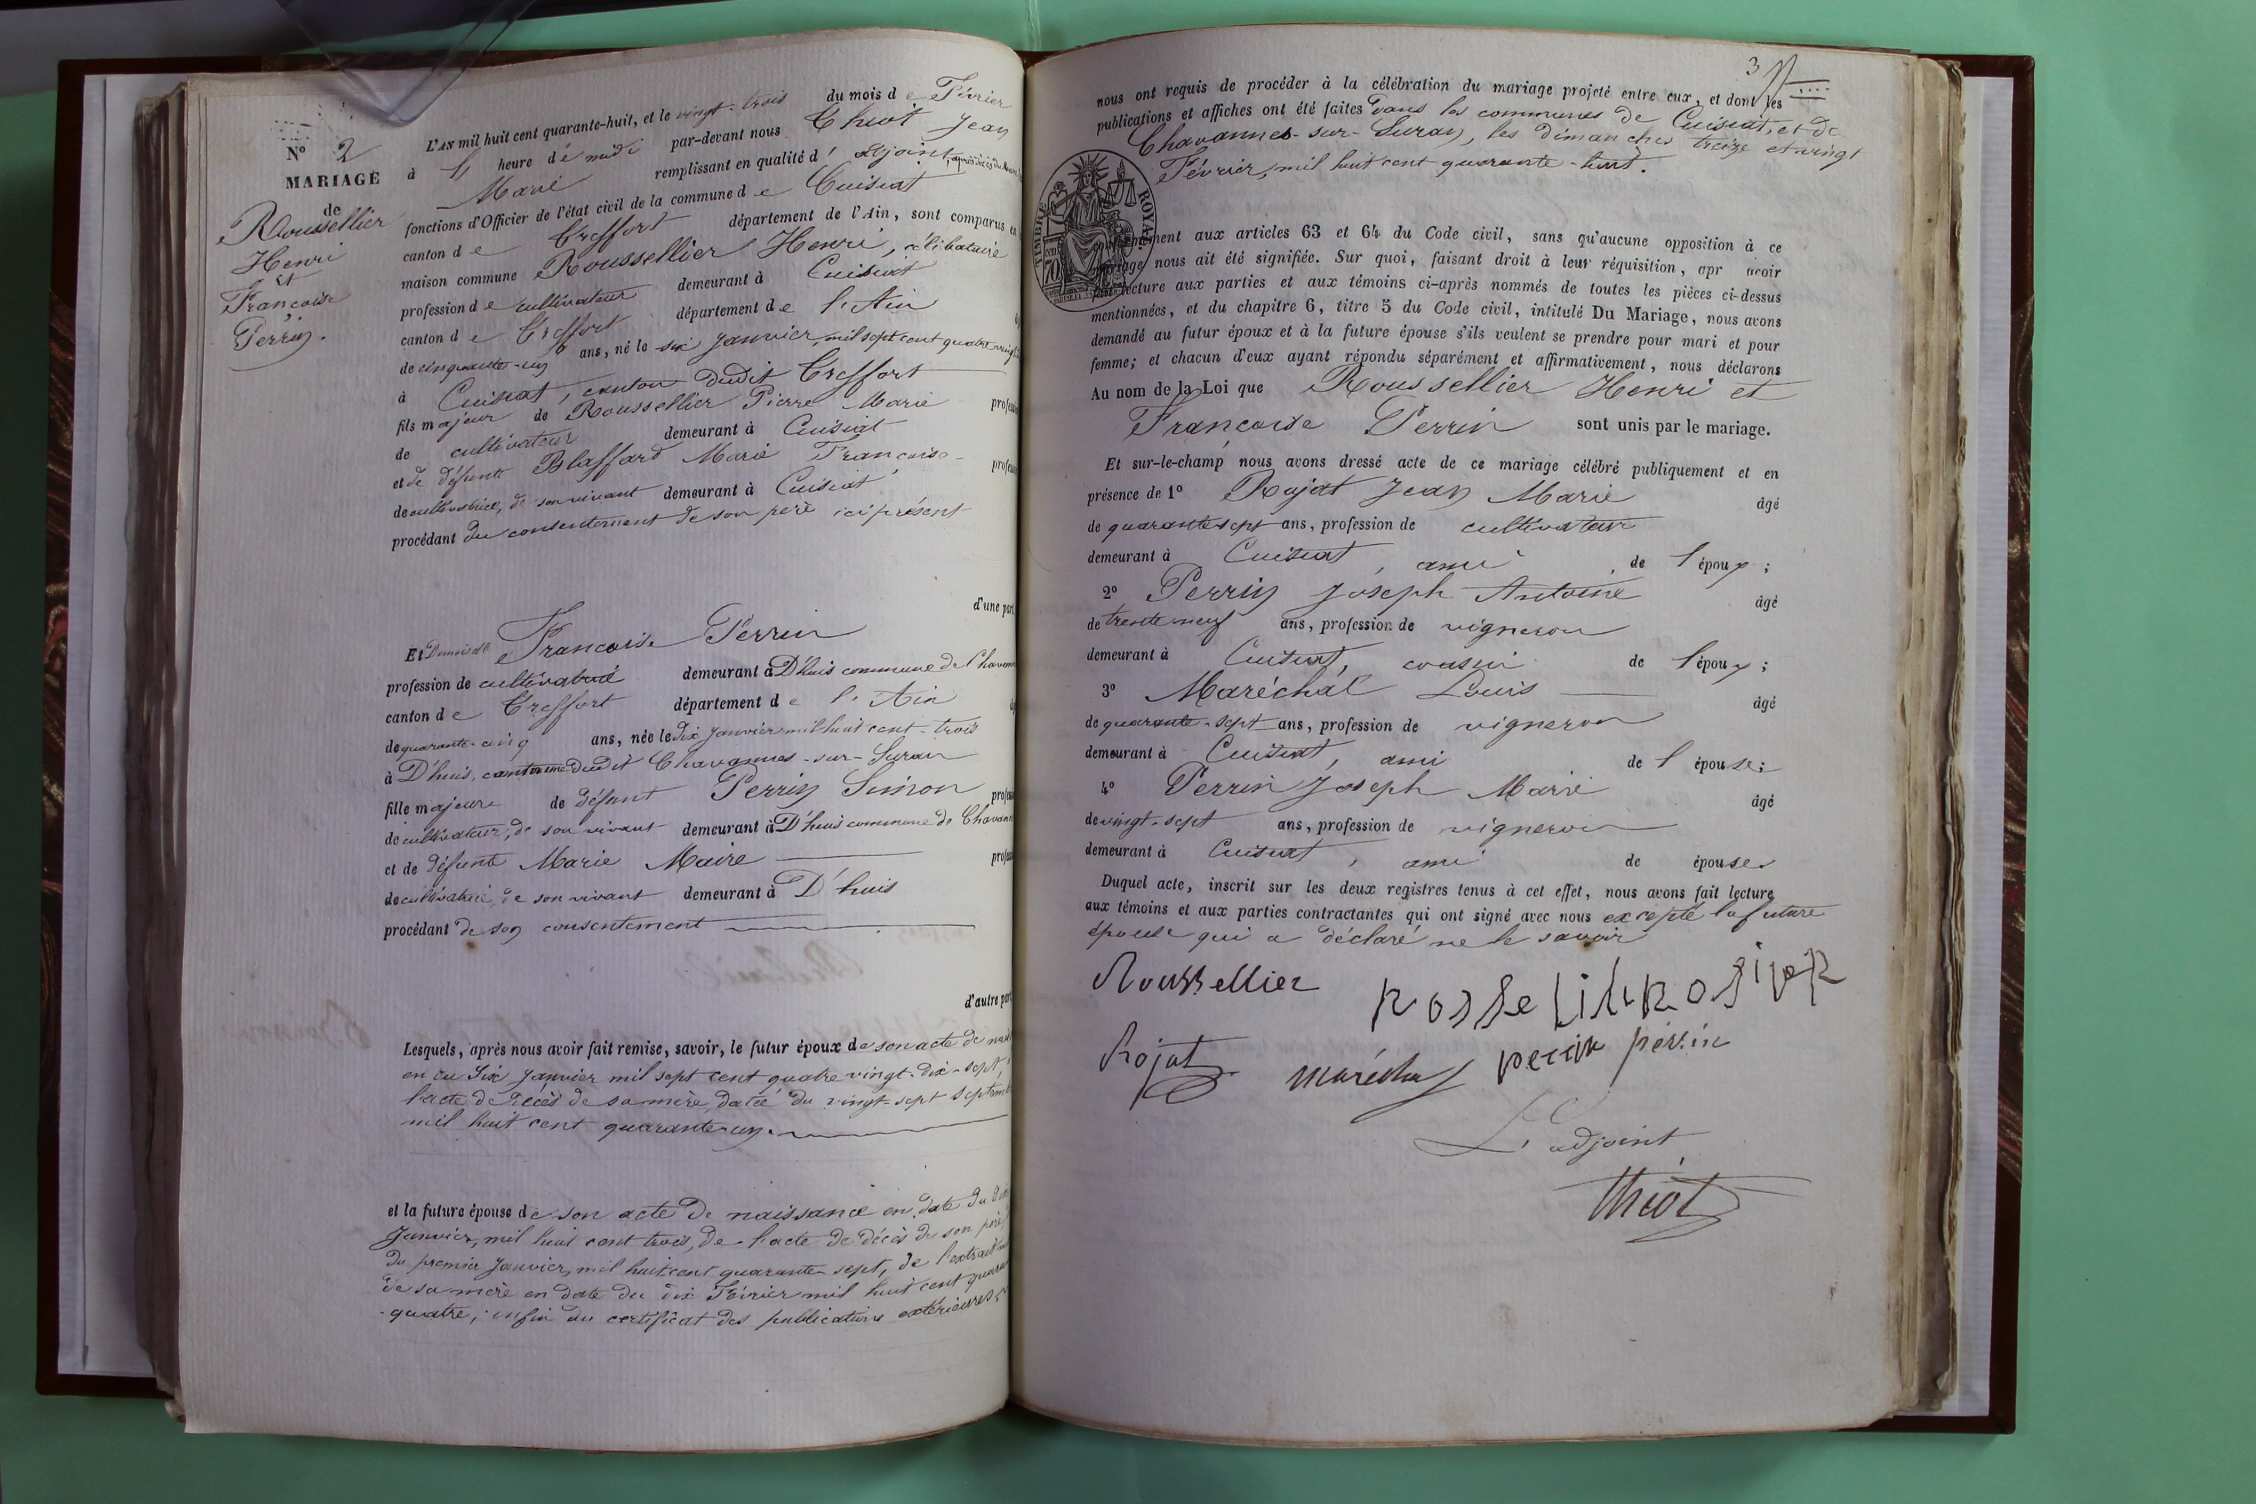 N° 2
MARIAGE
de
Roussellier
Henri
et
Françoise
Perrin.
L'AN mil huit cent quarante-huit, et le vingt-trois du mois de Février
à heure de midi par-devant nous Jean
Marie remplissant en qualité d'adjoint,
fonctions d'Officier de l'état civil de la commune de Cuisiat
canton de Treffort département de l'Ain, sont comparus en
maison commune Roussellier Henri, célibataire
profession de cultivateur demeurant à Cuisiat
canton de Treffort département de l'Ain
de cinquante-un ans, né le six Janvier, mil sept cent quatre vingt
à Cuisiat, canton dudit Treffort
fils majeur de Roussellier Pierre Marie
de cultivateur demeurant à Cuisiat
et de défunte Blaffard Marie Françoise
de cultivatrice, de son vivant demeurant à Cuisiat
procédant du consentement de son père ici présent
d'une part,
Et Demoiselle Françoise Perrin
profession de cultivatrice demeurant à D'huis commune de Chavannes
canton de Treffort département de l'Ain
de quarante-cinq ans, née le dix Janvier mil huit cent-trois
à D'huis, commune dudit Chavannes-sur-Suran
fille majeure de défunt Perrin Simon
de cultivateur, de son vivant demeurant à D'huis commune de Chavannes
et de défunte Marie Maire
de cultivatrice, de son vivant demeurant à D'huis
procédant de son consentement
d'autre part
Lesquels, après nous avoir fait remise, savoir, le futur époux de son acte de
en du six Janvier mil sept cent quatre vingt-dix-sept,
l'acte de décès de sa mère, daté du vingt-sept septembre
mil huit cent quarante-un.
et la future épouse de son acte de naissance en date du
Janvier, mil huit cent trois, de l'acte de décès de son père
du premier Janvier, mil huit cent quarante-sept, de l'extrait
de sa mère en date du dix Février mil huit cent quarante
-quatre; enfin du certificat des publications extérieures,
3
nous ont requis de procéder à la célébration du mariage projeté entre eux, et dont les
publications et affiches ont été faites dans les communes de Cuisiat, et de
Chavannes-sur-Suran, les dimanches treize et vingt
Février, mil huit cent quarante-huit.
TIMBRE ROYAL
70
aux articles 63 et 64 du Code civil, sans qu'aucune opposition à ce
mariage nous ait été signifiée. Sur quoi, faisant droit à leur réquisition, apr avoir
lecture aux parties et aux témoins ci-après nommés de toutes les pièces ci-dessus
mentionnées, et du chapitre 6, titre 5 du Code civil, intitulé Du Mariage, nous avons
demandé au futur époux et à la future épouse s'ils veulent se prendre pour mari et pour
femme; et chacun d'eux ayant répondu séparément et affirmativement, nous déclarons
Au nom de la Loi que Roussellier Henri et
Françoise Perrin sont unis par le mariage.
Et sur-le-champ nous avons dressé acte de ce mariage célébré publiquement et en
présence de 1° Rojat Jean Marie âgé
de quarante-sept ans, profession de cultivateur
demeurant à Cuisiat, ami de l'époux;
2° Perrin Joseph Antoine âgé
de trente-neuf ans, profession de vigneron
demeurant à Cuisiat, cousin de l'époux;
3° Maréchal Louis âgé
de quarante-sept ans, profession de vigneron
demeurant à Cuisiat, ami de l'épouse;
4° Perrin Joseph Marie âgé
de vingt-sept ans, profession de vigneron
demeurant à Cuisiat, ami de épouse
Duquel acte, inscrit sur les deux registres tenus à cet effet, nous avons fait lecture
aux témoins et aux parties contractantes qui ont signé avec nous excepté la future
épouse qui a déclaré ne le savoir
Roussellier
Rojat maréchal perrin perrin
L'adjoint